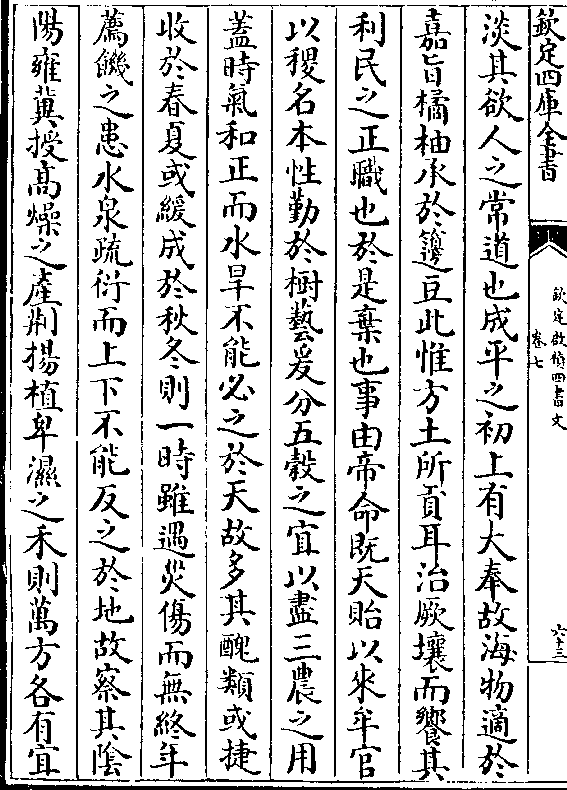 欽定四庫全書
欽定啟禎四書文
卷七
六十三
淡其欲人之常道也成平之初上有大奉故海物適於
嘉旨橘柚承於籩豆此惟方土所貢耳治厥壤而饗其
利民之正職也於是棄也事由帝命既天貽以來牟官
以稷名本性勤於樹藝爰分五穀之宜以盡三農之用
蓋時氣和正而水旱不能必之於天故多其醜類或捷
收於春夏或緩成於秋冬則一時雖遇災傷而無終年
薦饑之患水泉疏衍而上下不能反之於地故察其陰
陽雍冀授高燥之產荆揚植卑濕之禾則萬方各有宜